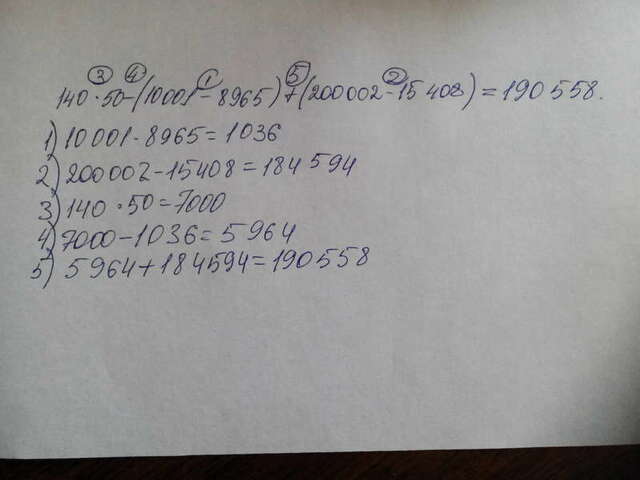 ③ ④ ① ⑤ ②
140 · 50 - (10001 - 8965) + (200002 - 15408) = 190558.
1) 10001 - 8965 = 1036
2) 200002 - 15408 = 184594
3) 140 · 50 = 7000
4) 7000 - 1036 = 5964
5) 5964 + 184594 = 190558